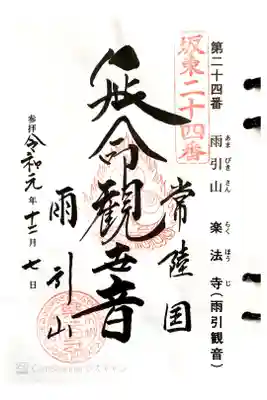 第二十四番 雨引山 楽法寺(雨引観音)
あま びき さん らく ほう じ
坂東二十四番
常陸国
延命観世音
雨引山
参拝 令和元年十二月七日
CamScanner でスキャン